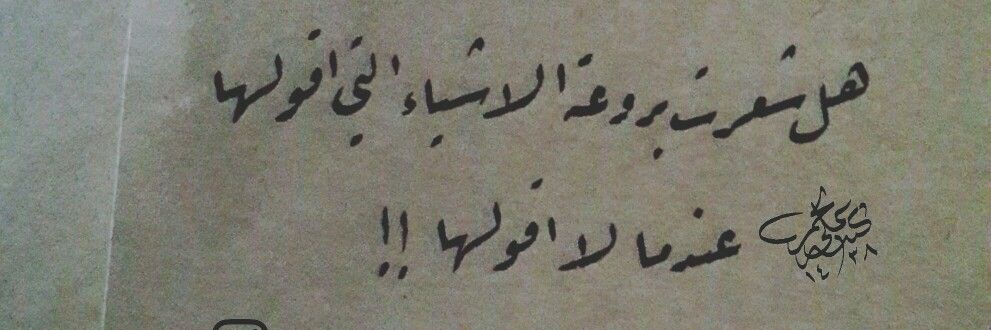 هل شعرت بروعة الاشياء التي اقولها
عندما لا اقولها !!
١٤٣٨